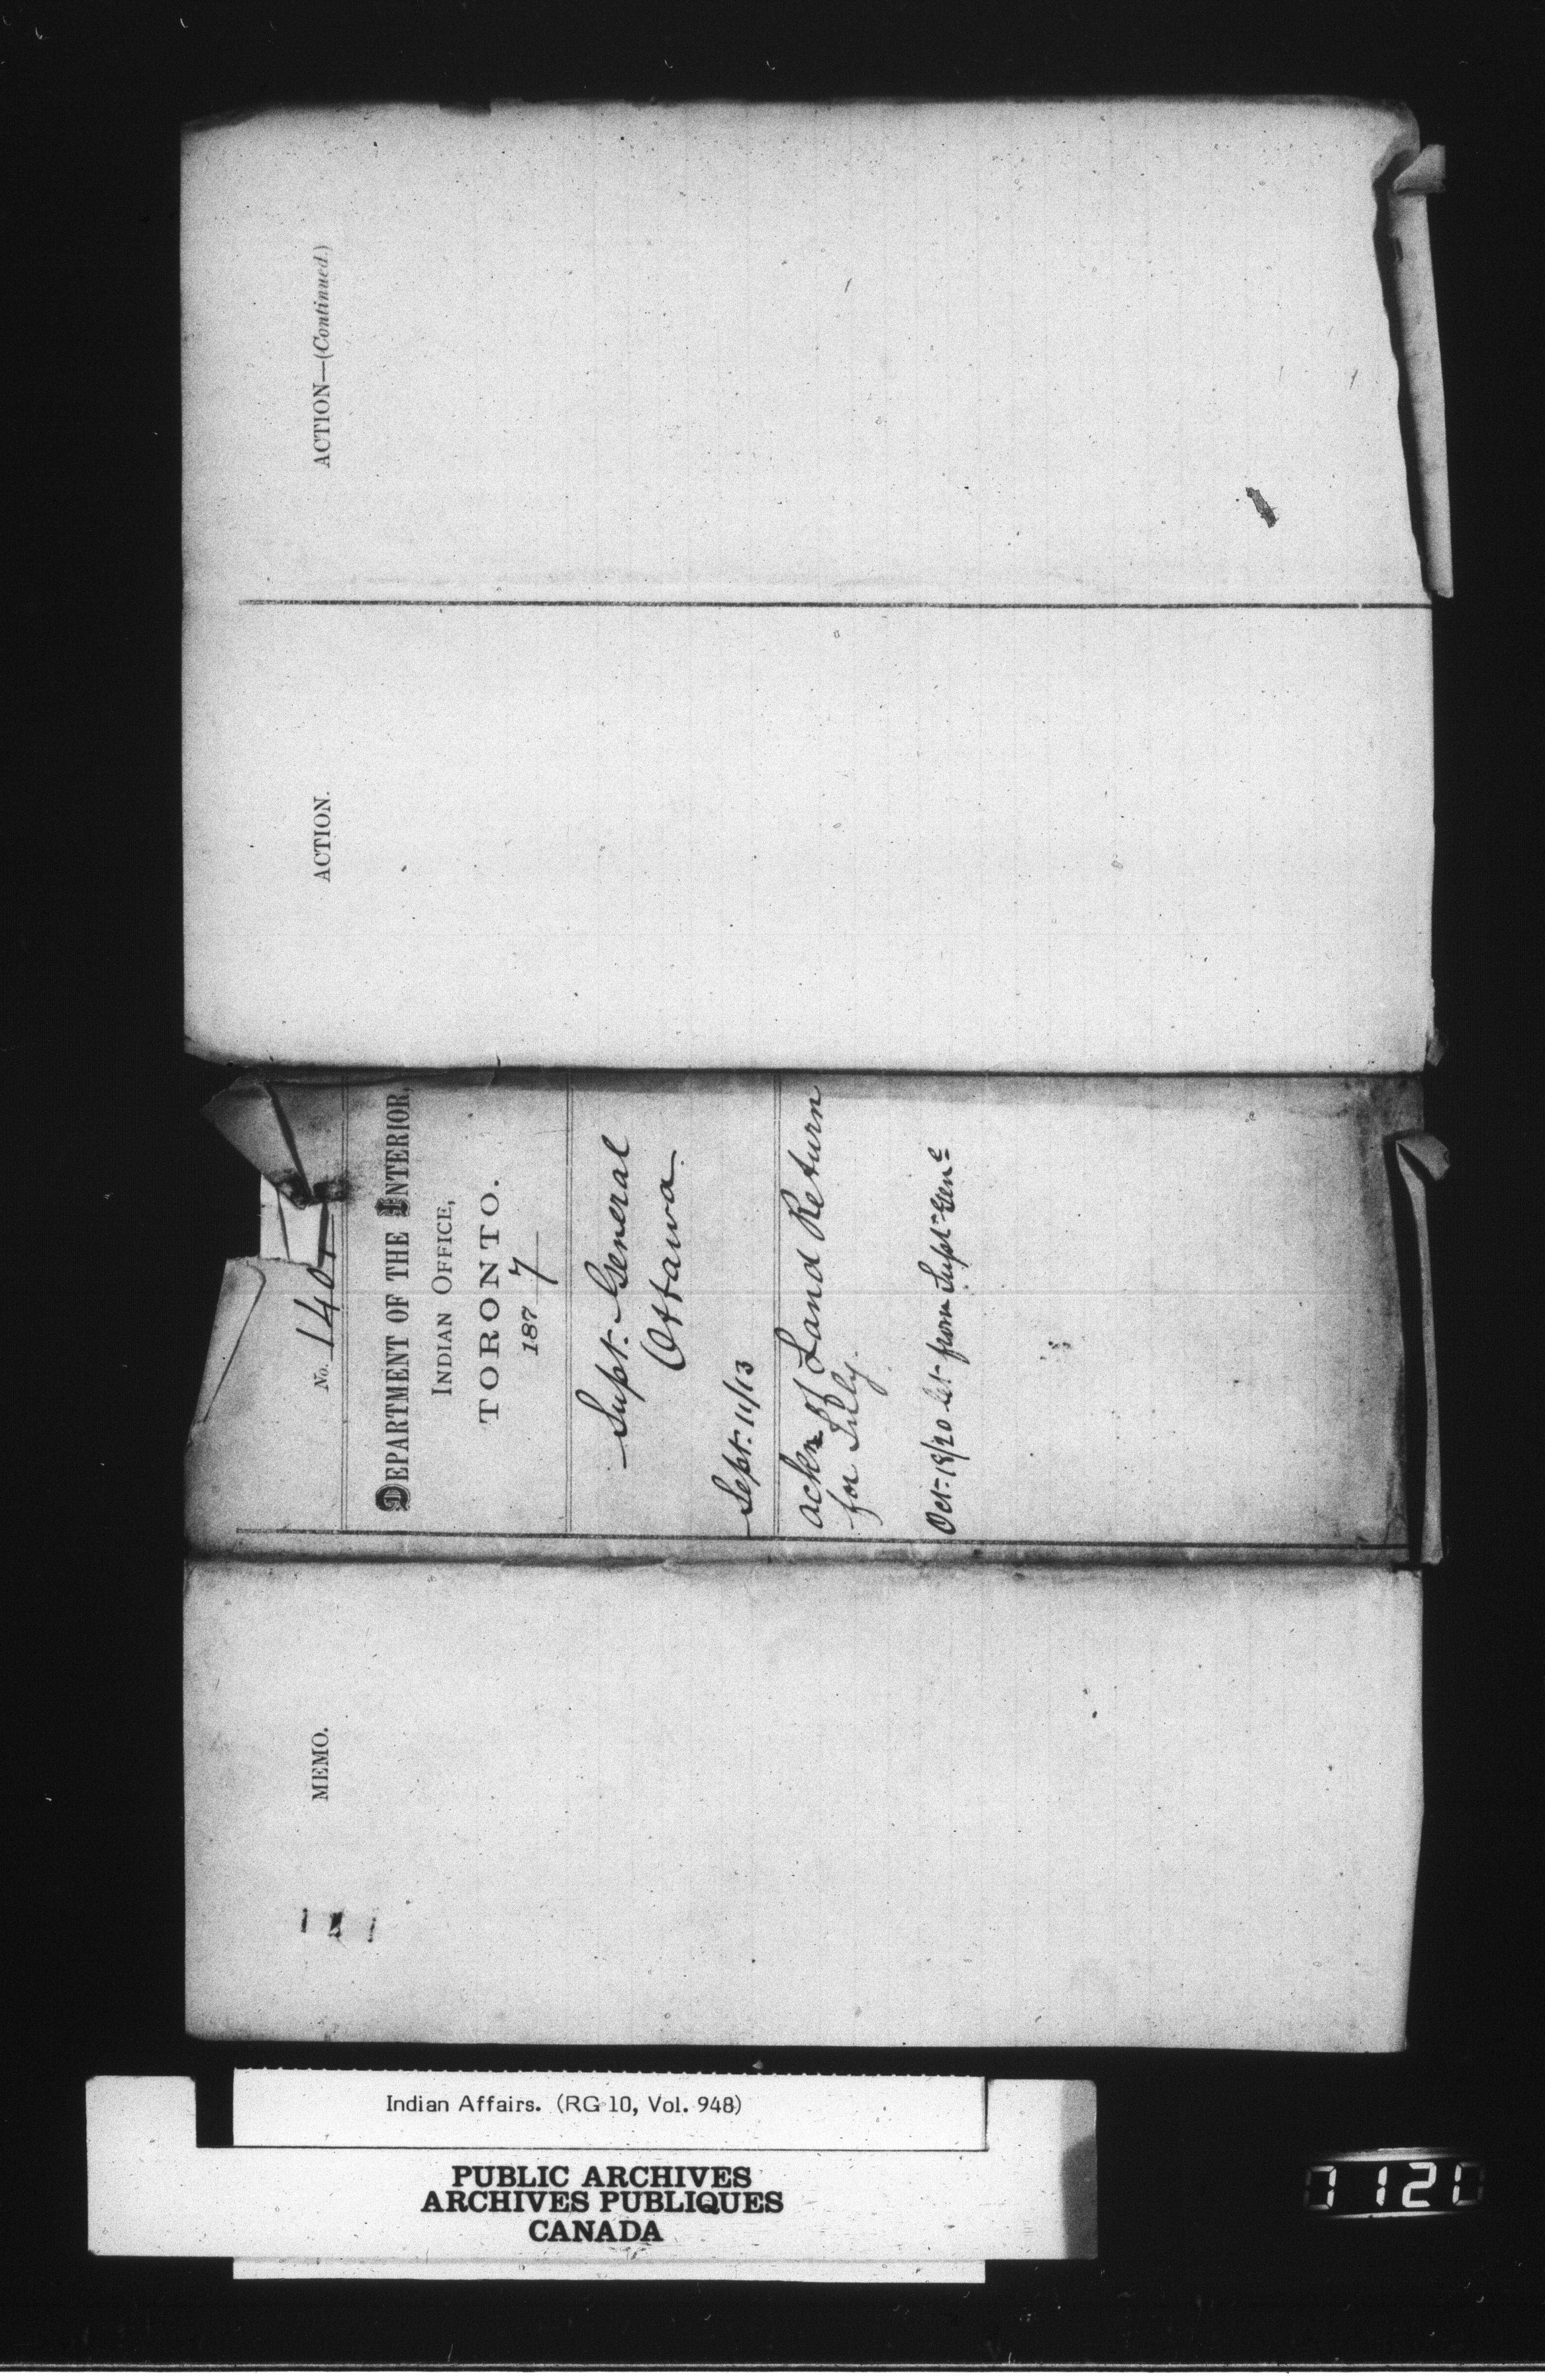 MEMO.
No. 140
DEPARTMENT OF THE INTERIOR,
INDIAN OFFICE,
TORONTO.
1877
Supt. General
Ottawa
Sept. 11/13
ackg Land Return
for July.
Oct. 18/20 let. from Supt. Genl
ACTION.
ACTION—(Continued.)
Indian Affairs. (RG 10, Vol. 948)
PUBLIC ARCHIVES
ARCHIVES PUBLIQUES
CANADA